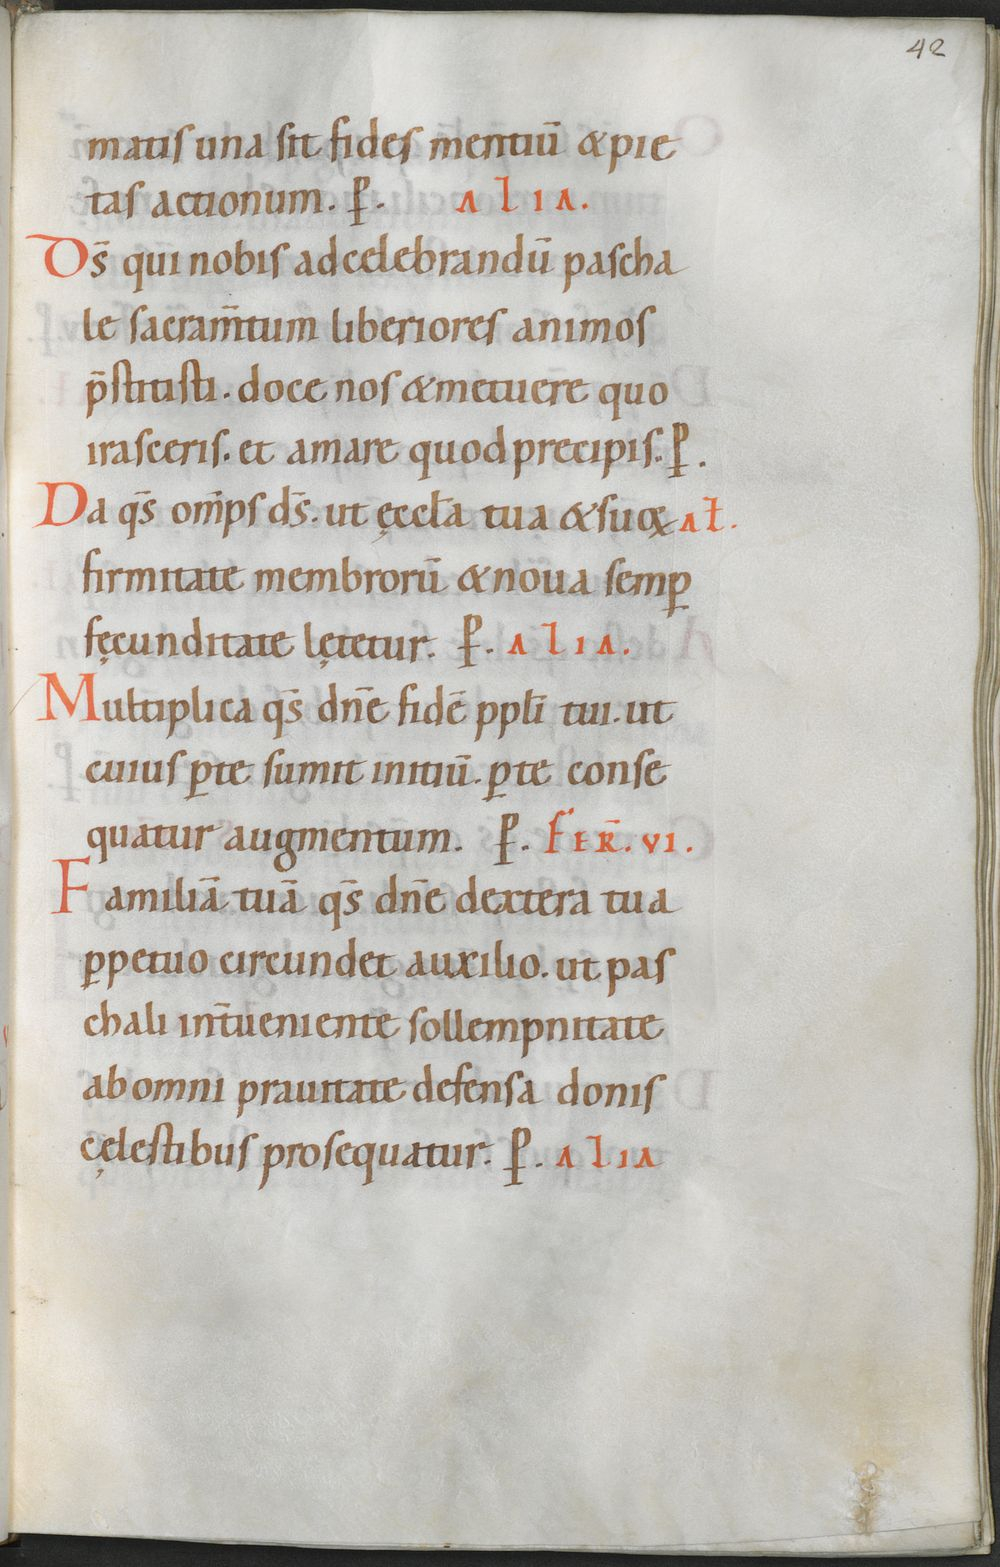 42
matis una sit fides mentiū & pie
tas actionum. ꝑ. ALIA.
Ds̄ qui nobis ad celebrandū pascha
le sacram̄tum liberiores animos
p̄stitisti. doce nos & metuere quo
irasceris. et amare quod precipis. ꝑ.
Da qs̄ om̄ps ds̄. ut ęccƚa tua & suoꝝ Aƚ.
firmitate membrorū & noua semꝑ
fęcunditate lętetur. ꝑ. ALIA.
Multiplica qs̄ dn̄e fidē ppƚi tui. ut
cuius ꝑte sumit initiū. ꝑte conse
quatur augmentum. ꝑ. FER̄. VI.
Familiā tuā qs̄ dn̄e dextera tua
ꝑpetuo circundet auxilio. ut pas
chali int̄ueniente sollempnitate
ab omni prauitate defensa donis
cęlestibus prosequatur. ꝑ. ALIA